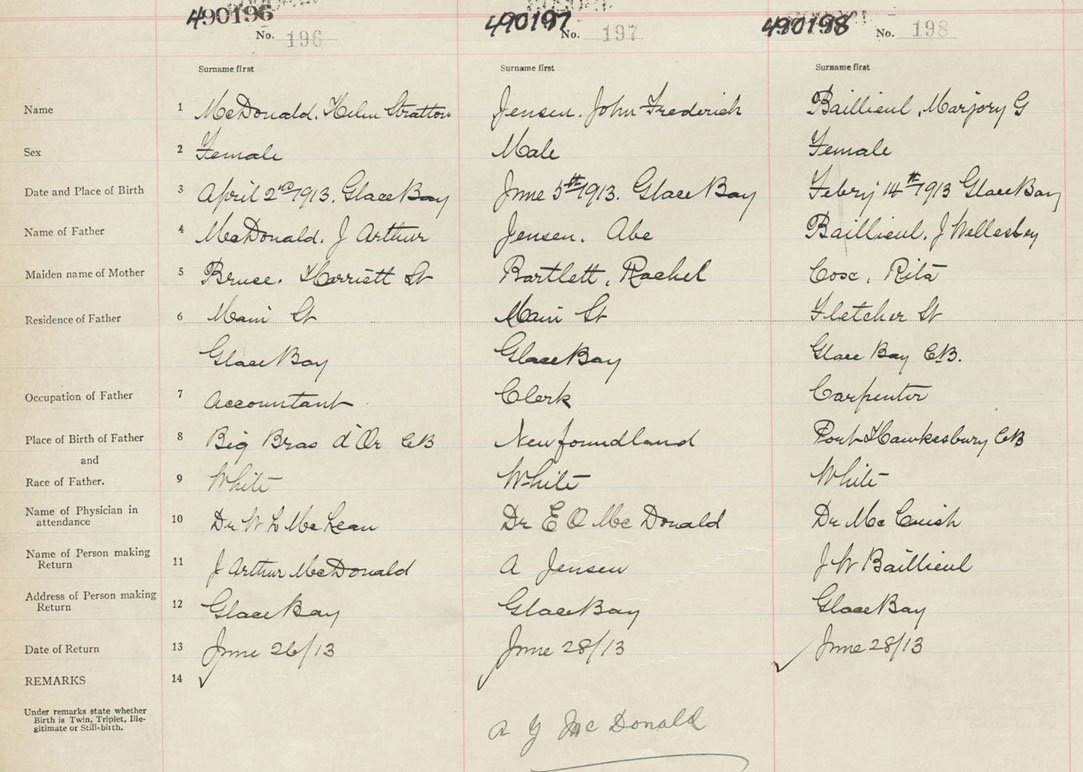 490196 490197 490198
No. 196 No. 197 No. 198
Surname first Surname first Surname first
Name 1 McDonald, Helen Stratton Jensen, John Frederick Baillieul, Marjory G
Sex 2 Female Male Female
Date and Place of Birth 3 April 2nd 1913. Glace Bay June 5th 1913. Glace Bay Febry 14th 1913 Glace Bay
Name of Father 4 McDonald, J Arthur Jensen, Abe Baillieul, J Wellesley
Maiden name of Mother 5 Bruce, Harriett St Bartlett, Rachel Rita
Residence of Father 6 Main St Main St Fletcher St
Glace Bay Glace Bay Glace Bay C.B.
Occupation of Father 7 Accountant Clerk Carpenter
Place of Birth of Father 8 Big Bras d'Or CB Newfoundland Port Hawkesbury CB
and
Race of Father. 9 White White White
Name of Physician in
attendance 10 Dr W L McLean Dr E O McDonald Dr McCuish
Name of Person making
Return 11 J Arthur McDonald A Jensen J W Baillieul
Address of Person making
Return 12 Glace Bay Glace Bay Glace Bay
Date of Return 13 June 26/13 June 28/13 June 28/13
REMARKS 14
Under remarks state whether
Birth is Twin, Triplet, Ille-
gitimate or Still-birth.
A G McDonald